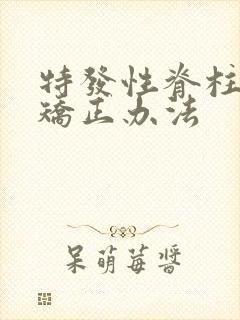 特發性脊柱
矯正办法
呆萌莓醬